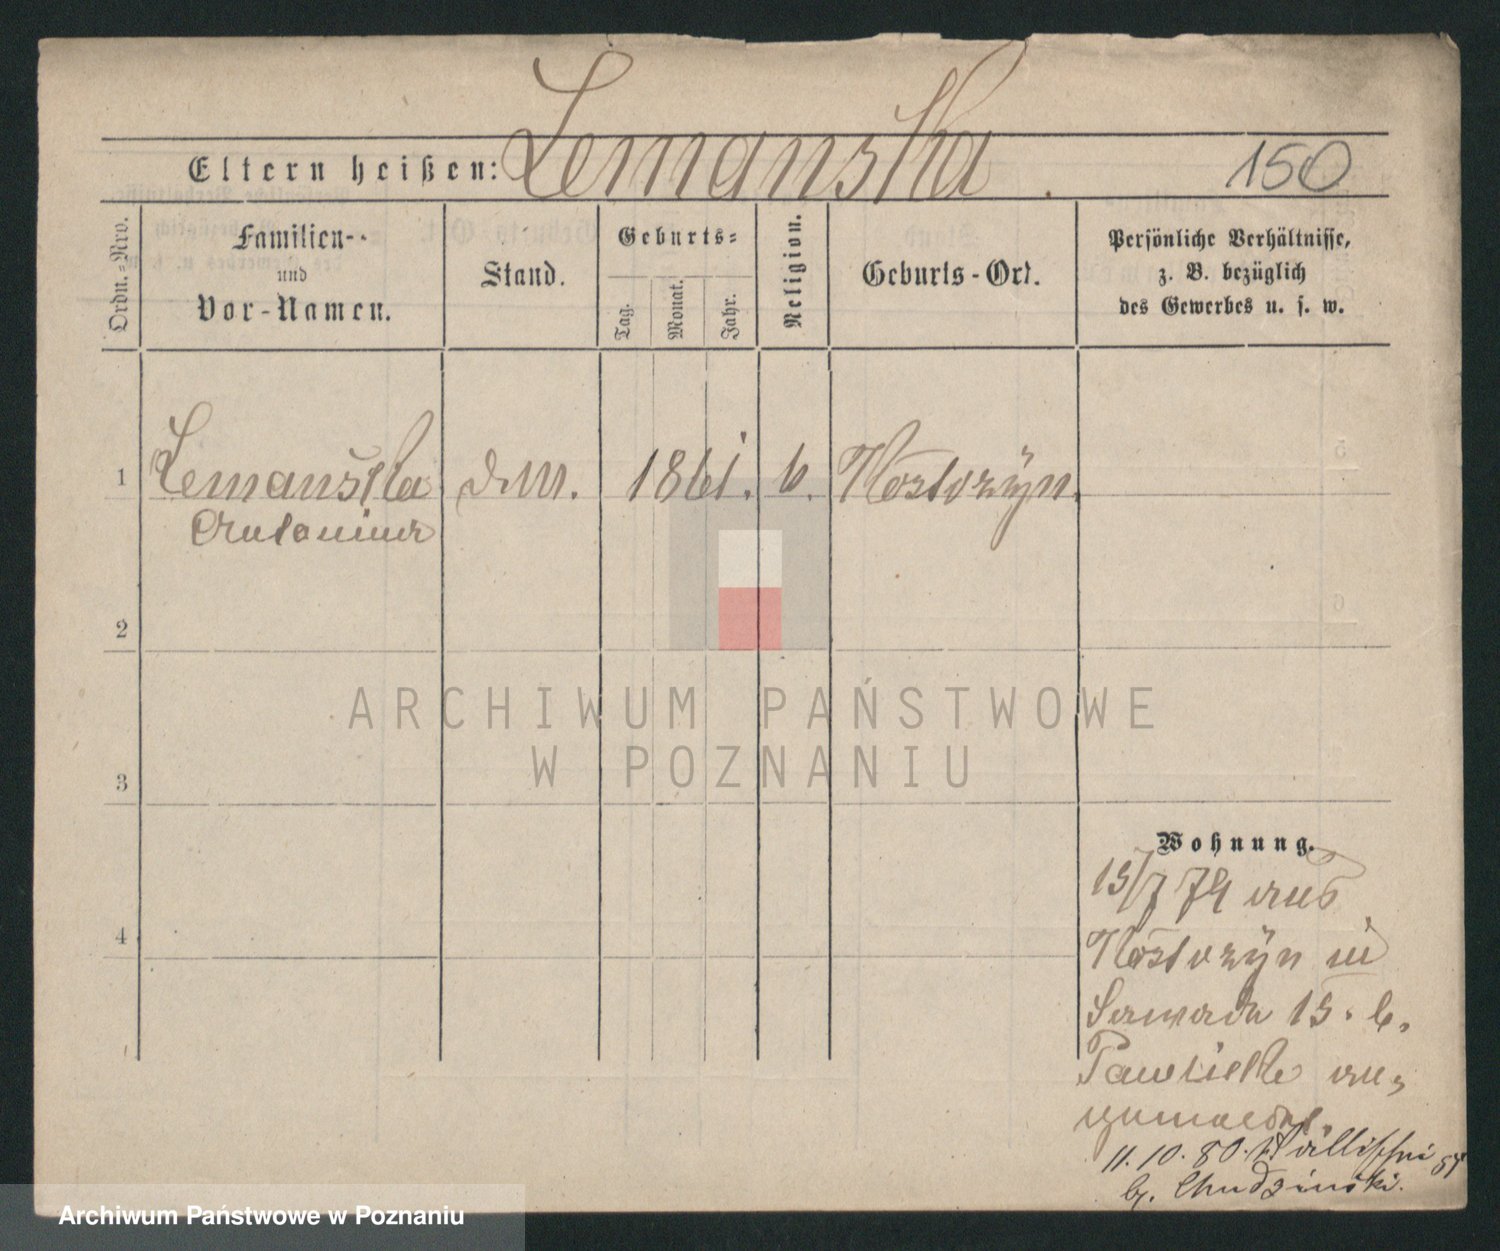 Lemanska.
Eltern heißen:
150
Ordn.-Nro.
Familien-
und
Vor-Namen.
Stand.
Geburts-
Tag.
Monat.
Jahr.
Religion.
Geburts-Ort.
Persönliche Verhältnisse,
z. B. bezüglich
des Gewerbes u. s. w.
1
Lemanska
Antonina
d. M.
1861.
k.
Kostrzyn.
2
3
4
ARCHIWUM PAŃSTWOWE
W POZNANIU
Wohnung.
15/7 79 aus
Kostrzyn in
15. b.
an-
gemeldet.
11. 10. 80.
b. Chudzinski.
Archiwum Państwowe w Poznaniu